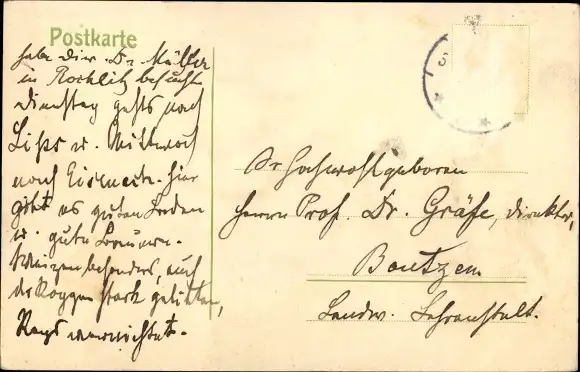 Postkarte
habe hier Dr. Müller
in Rochlitz besucht
Dienstag gehts nach
u. Mittwoch
nach hier
gibt es guten Boden
u. gute
Weizen besonders, auch
der Roggen stark gelitten,
Raps vernichtet.
Sr Hochwohlgeboren
Herrn Prof. Dr. Gräfe, Direktor,
Bautzen
Landw. Lehranstalt.